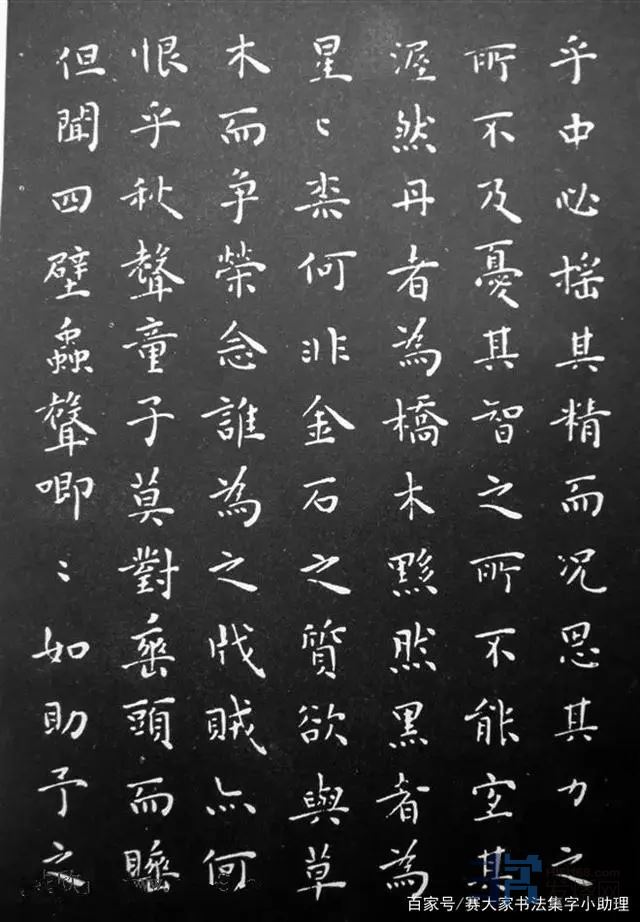 乎中必摇其精而况思其力之
所不及憂其智之所不能宜其
渥然丹者為橋木黟然黑者為
星〻柰何非金石之質欲與草
木而争榮念誰為之戕賊亦何
恨乎秋聲童子莫對垂頭而睡
但聞四壁蟲聲唧〻如助予之
百家号/赛大家书法集字小助理